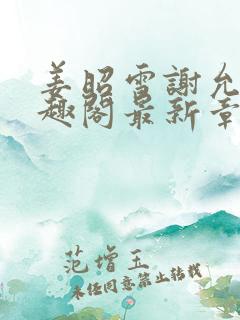 姜昭雪謝允
趣閣最新章
范增玉
未经同意禁止转载